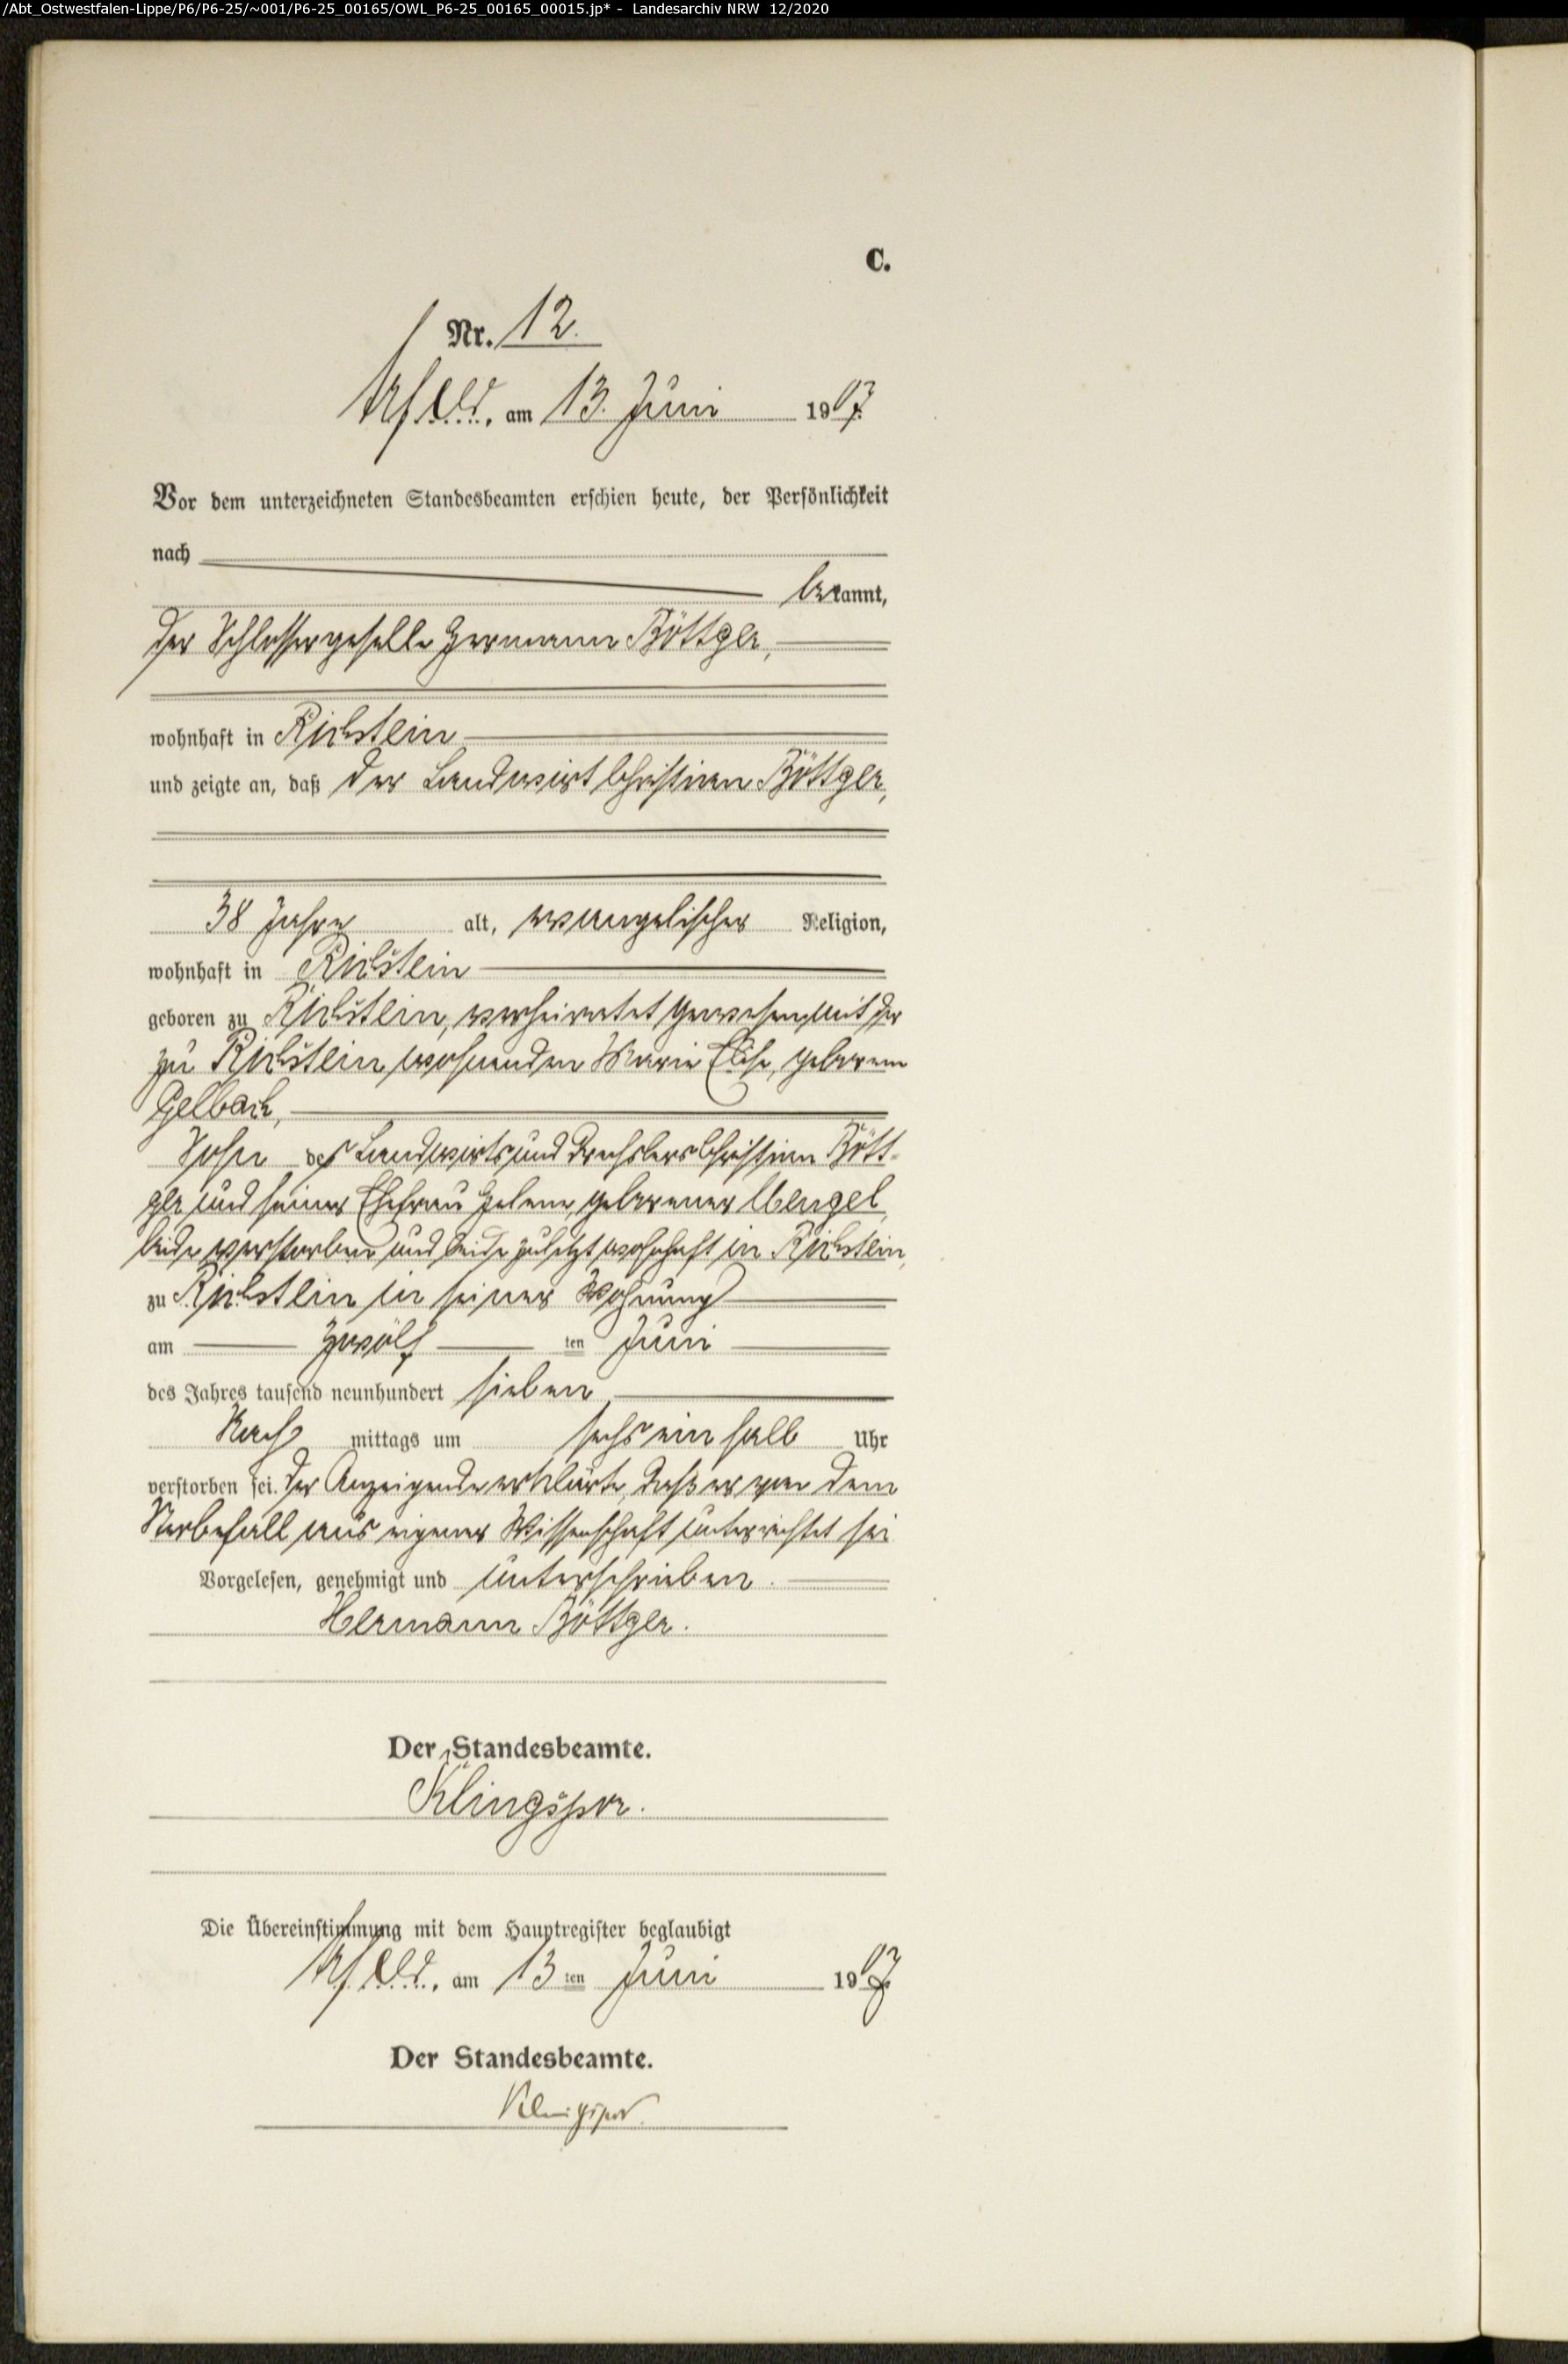 /Abt_Ostwestfalen-Lippe/P6/P6-25/~001/P6-25_00165/OWL_P6-25_00165_00015.jp* - Landesarchiv NRW 12/2020
C.
Nr. 12.
Arfeld, am 13. Juni 1907.
Vor dem unterzeichneten Standesbeamten erschien heute, der Persönlichkeit
nach
bekannt,
der Schlossergeselle Hermann Böttger,
wohnhaft in Richstein
und zeigte an, daß der Landwirt Christian Böttger,
38 Jahre alt, evangelischer Religion,
wohnhaft in Richstein
geboren zu Richstein, verheiratet gewesen mit der
zu Richstein wohnenden Marie Elise, geborene
Gelbach,
Sohn des Landwirts und Drechslers Christian Bött-
ger und seiner Ehefrau Helene, geborener Mengel,
beide verstorben und beide zuletzt wohnhaft in Richstein,
zu Richstein in seiner Wohnung
am zwölf ten Juni
des Jahres tausend neunhundert sieben
Nach mittags um sechs ein halb Uhr
verstorben sei. Der Anzeigende erklärte, daß er von dem
Sterbefall aus eigener Wissenschaft unterrichtet sei
Vorgelesen, genehmigt und unterschrieben.
Hermann Böttger.
Der Standesbeamte.
Klingspor.
Die Übereinstimmung mit dem Hauptregister beglaubigt
Arfeld, am 13 ten Juni 1907.
Der Standesbeamte.
Klingspor.